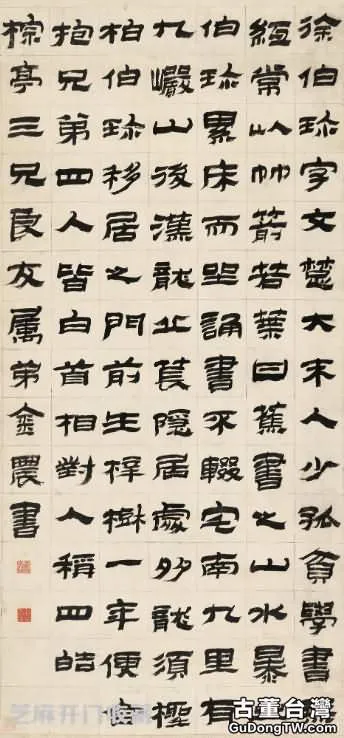 徐伯珍字文楚大末人少孤貧學書無
常以竹箭若葉甘蕉書之山水暴
伯珍累床而坐誦書不輟宅南九里有
九巖山後漢龍丘萇隱居處多龍須檉
柏伯珍移居之門前生梓樹一年便合
抱兄弟四人皆白首相對人稱四皓
棕亭三兄良友屬弟金農書
芝麻开门收藏
古董台灣
GuDongTw.com